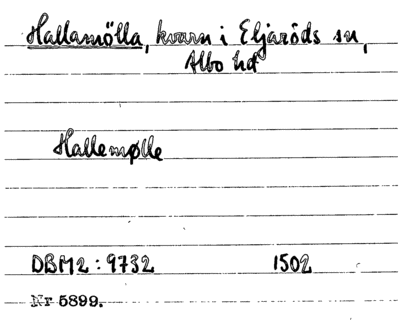 Hallamölla, kvarn i Eljaröds sn,
Albo hd
Hallemølle
DBM2: 9732 1502
Nr 5899.